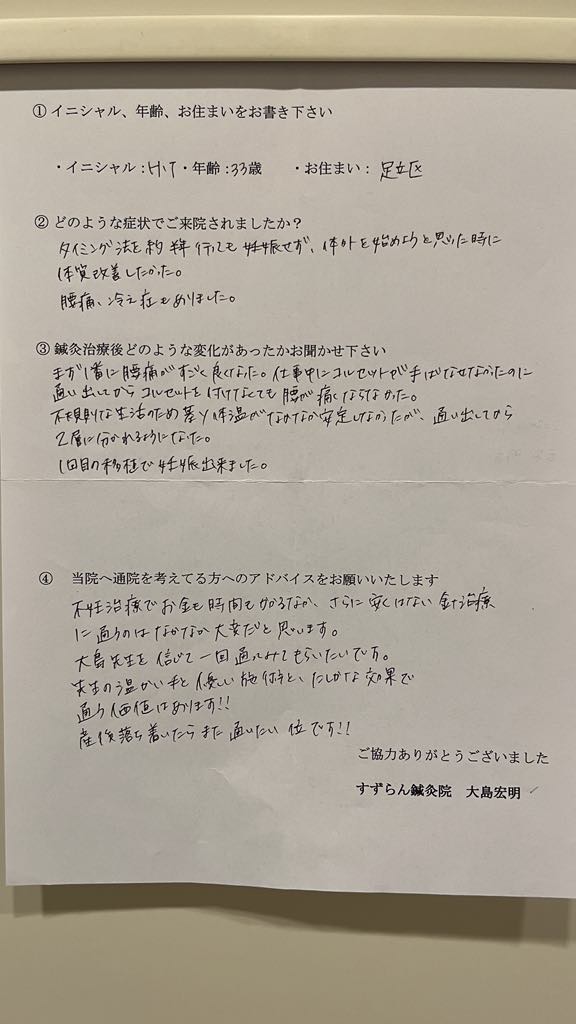 ① イニシャル、年齢、お住まいをお書き下さい
・イニシャル：H.T ・年齢：33歳 ・お住まい： 足立区
② どのような症状でご来院されましたか？
タイミング法を約 半年行っても妊娠せず、体外を始めようと思った時に
体質改善したかった。
腰痛、冷え症もありました。
③ 鍼灸治療後どのような変化があったかお聞かせ下さい
まず1番に腰痛がすごく良くなった。仕事中にコルセットが手ばなせなかったのに
通い出してからコルセットを付けなくても腰が痛くならなかった。
不規則な生活のため基礎体温がなかなか安定しなかったが、通い出してから
2層に分かれるようになった。
1回目の移植で妊娠出来ました。
④ 当院へ通院を考えてる方へのアドバイスをお願いいたします
不妊治療でお金も時間もかかるなか、さらに安くはない針治療
に通うのはなかなか大変だと思います。
大島先生を信じて一回通ってみてもらいたいです。
先生の温かい手と優しい施術と、たしかな効果で
通う価値はあります!!
産後落ち着いたらまた通いたい位です!!
ご協力ありがとうございました
すずらん鍼灸院 大島宏明